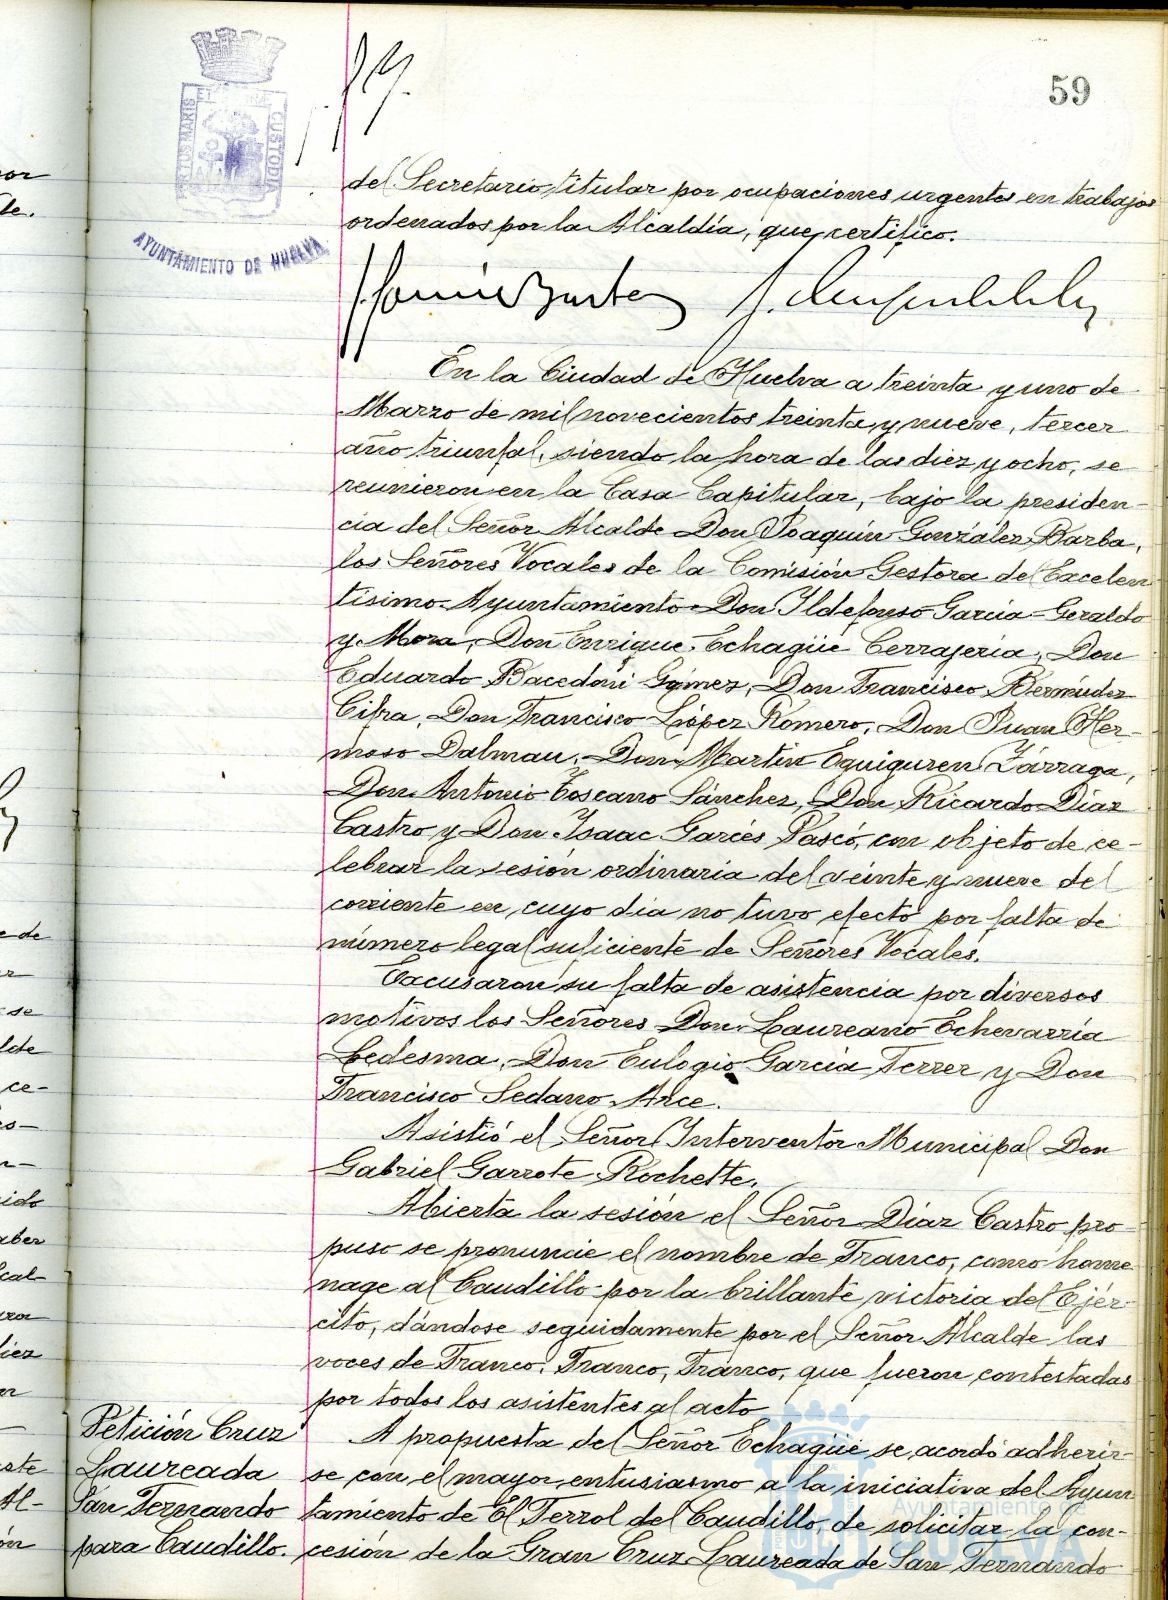 59
PORTUS MARIS ET TERRAE CUSTODIA
AYUNTAMIENTO DE HUELVA
del Secretario titular por ocupaciones urgentes en trabajos
ordenados por la Alcaldía, que certifico.
En la Ciudad de Huelva a treinta y uno de
Marzo de mil novecientos treinta y nueve, tercer
año triunfal, siendo la hora de las diez y ocho, se
reunieron en la Casa Capitular, bajo la presiden-
cia del Señor Alcalde Don Joaquín González Barba,
los Señores Vocales de la Comisión Gestora del Excelen
tísimo Ayuntamiento Don Ildefonso García-Geraldo
y Mora, Don Enrique Echagüe Cerrajería, Don
Eduardo Bacedoni Gómez, Don Francisco Bermúdez
Cifra, Don Francisco López Romero, Don Juan Her-
moso Dalmau, Don Martín Eguiguren Zárraga,
Don Antonio Toscano Sánchez, Don Ricardo Díaz
Castro y Don Isaac Garcés Pascó, con objeto de ce-
lebrar la sesión ordinaria del veinte y nueve del
corriente en cuyo día no tuvo efecto por falta de
número legal suficiente de Señores Vocales.
Excusaron su falta de asistencia por diversos
motivos los Señores Don Laureano Echevarría
Ledesma, Don Eulogio García Ferrer y Don
Francisco Sedano Arce.
Asistió el Señor Interventor Municipal Don
Gabriel Garrote Rochette.
Abierta la sesión el Señor Díaz Castro pro-
puso se pronuncie el nombre de Franco, como home
nage al Caudillo por la brillante victoria del Ejér-
cito, dándose seguidamente por el Señor Alcalde las
voces de Franco, Franco, Franco, que fueron contestadas
por todos los asistentes al acto
Petición Cruz
Laureada
San Fernando
para Caudillo.
A propuesta del Señor Echagüe se acordó adherir-
se con el mayor entusiasmo a la iniciativa del Ayun
tamiento de El Ferrol del Caudillo, de solicitar la con-
cesión de la Gran Cruz Laureada de San Fernando
Ayuntamiento de
HUELVA